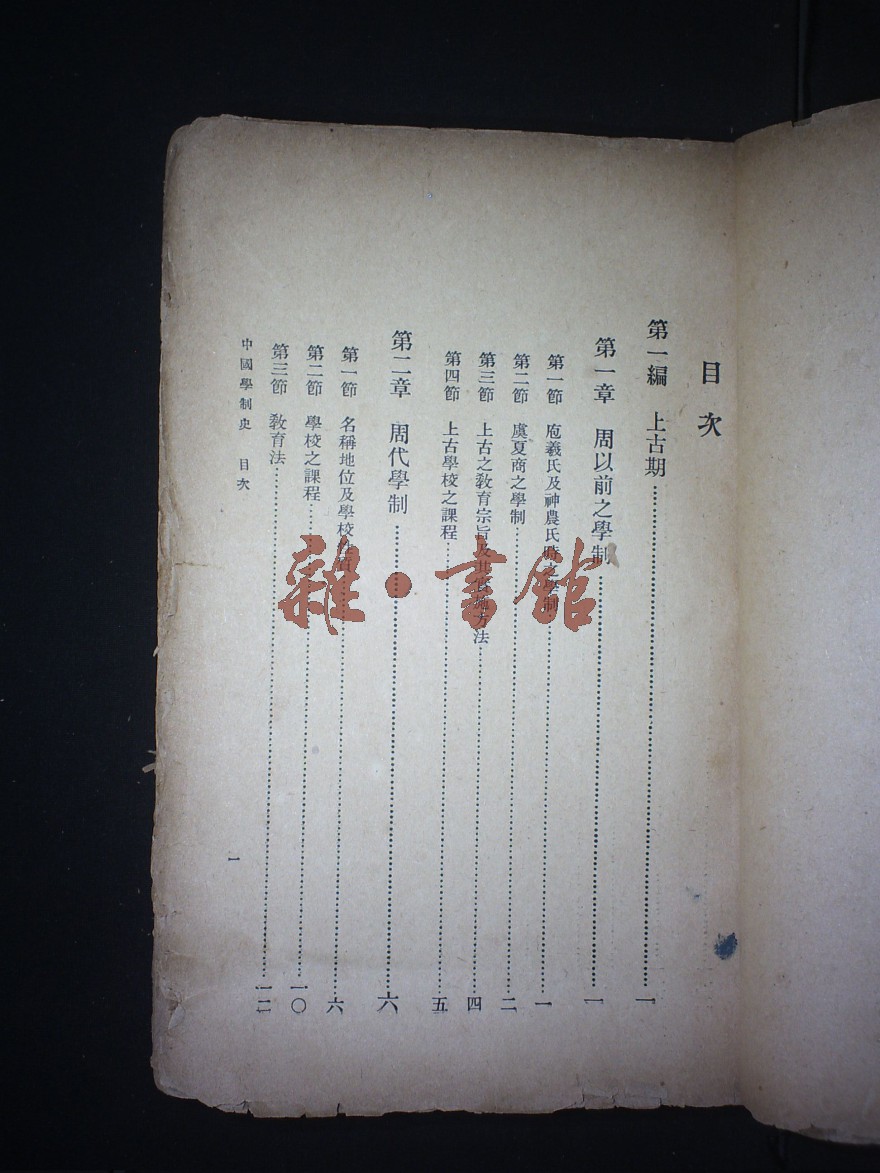 目次
第一編　上古期………一
第一章　周以前之學制………一
第一節　庖羲氏及神農氏時之學制………一
第二節　虞夏商之學制………二
第三節　上古之教育宗旨及其實施方法………四
第四節　上古學校之課程………五
第二章　周代學制………六
第一節　名稱地位及學校性質………六
第二節　學校之課程………一〇
第三節　教育法………一二
中國學制史　目次
一
雜·書館